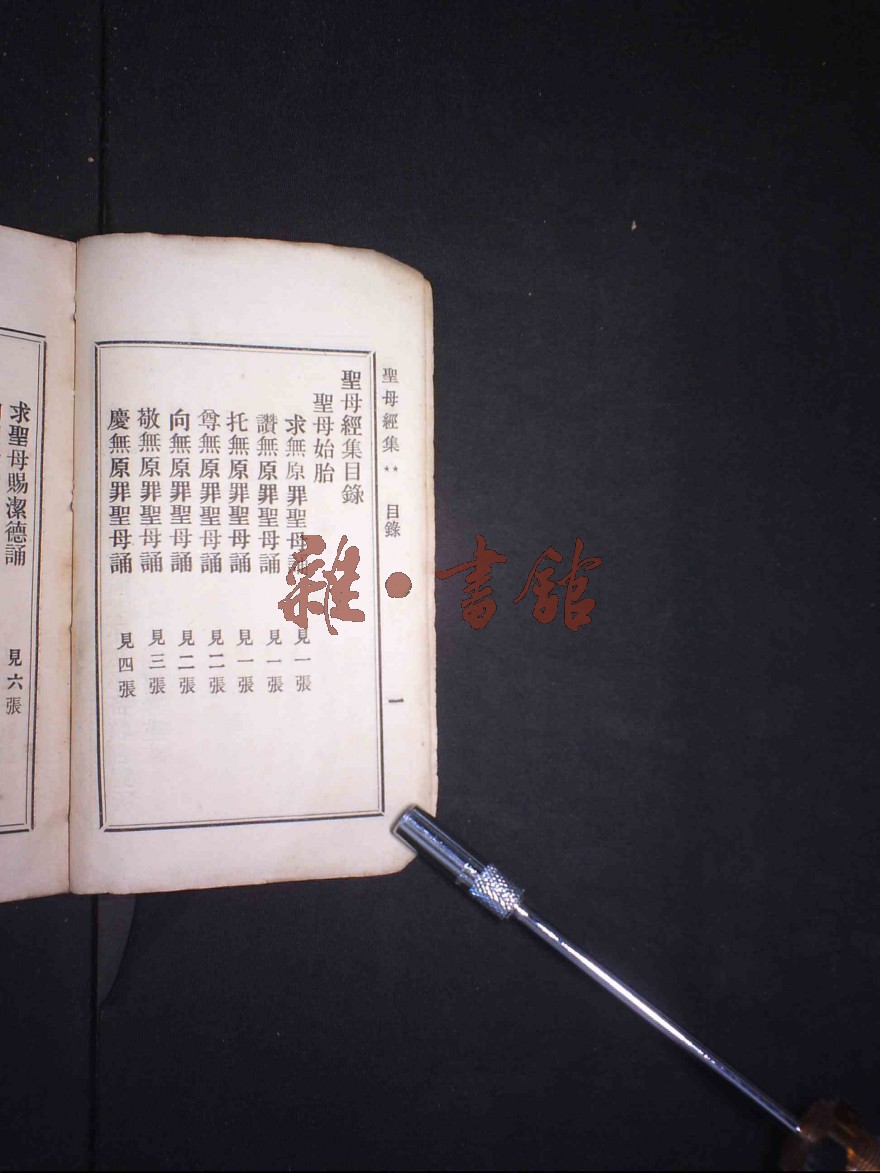 聖母經集 ** 目錄 一
聖母經集目錄
聖母始胎
求無原罪聖母誦 見一張
讚無原罪聖母誦 見一張
托無原罪聖母誦 見一張
尊無原罪聖母誦 見二張
向無原罪聖母誦 見二張
敬無原罪聖母誦 見三張
慶無原罪聖母誦 見四張
求聖母賜潔德誦 見六張
雜·書館